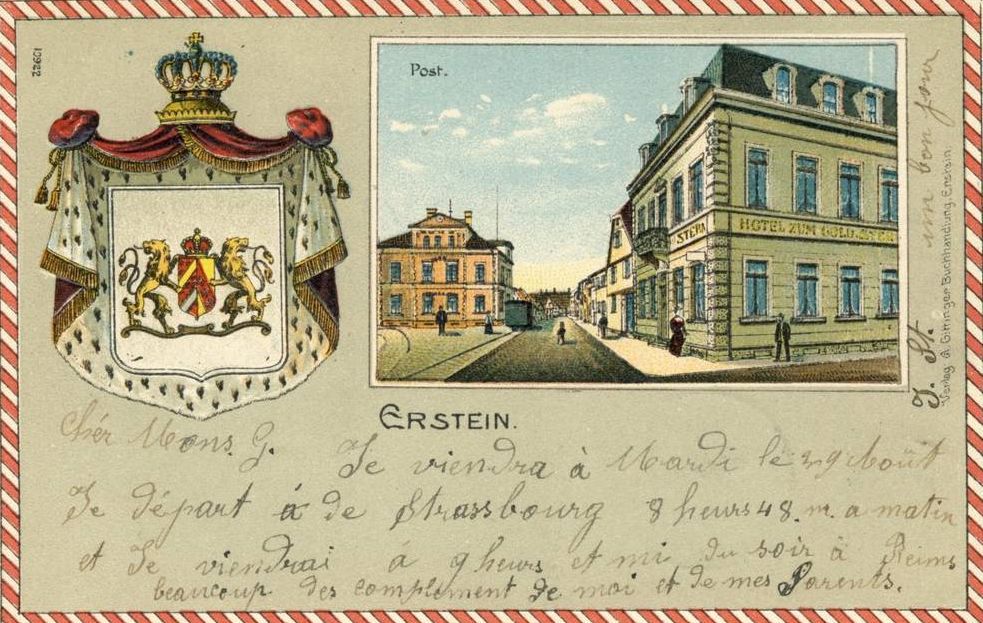 10922
Post.
STERN
HOTEL ZUM GOLD. STERN
Verlag A. Gittinger Buchhandlung, Erstein.
ERSTEIN.
Chér Mons. G. Je viendra à Mardi le 29 Août
Je départ á de Strassbourg 8 heurs 48. m. a matin
et Je viendrai á 9 heurs et mi du soir à Reims
beaucoup des complement de moi et de mes Parents.
J. St. un bon jour